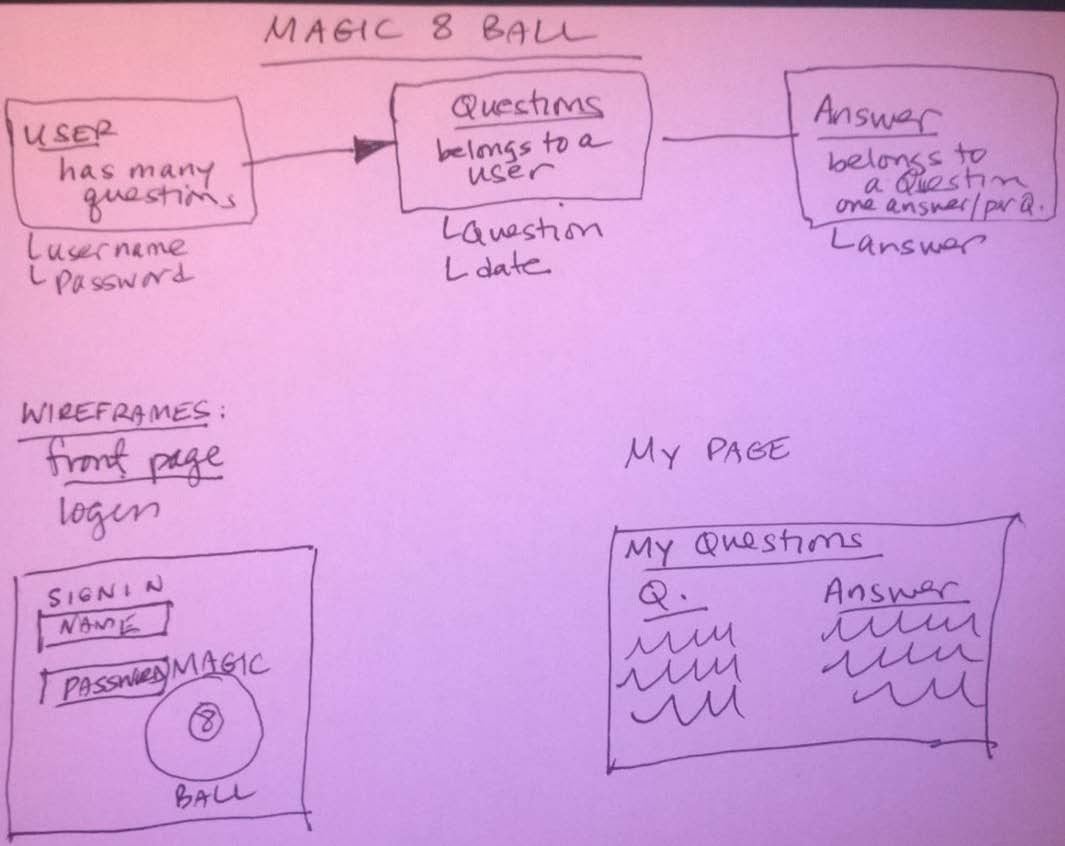 MAGIC 8 BALL
USER
has many
questions
username
password
Questions
belongs to a
user
Question
date
Answer
belongs to
a Question
one answer/per Q.
answer
WIREFRAMES:
front page
login
SIGN IN
NAME
PASSWORD
MAGIC
8
BALL
MY PAGE
MY Questions
Q.
Answer